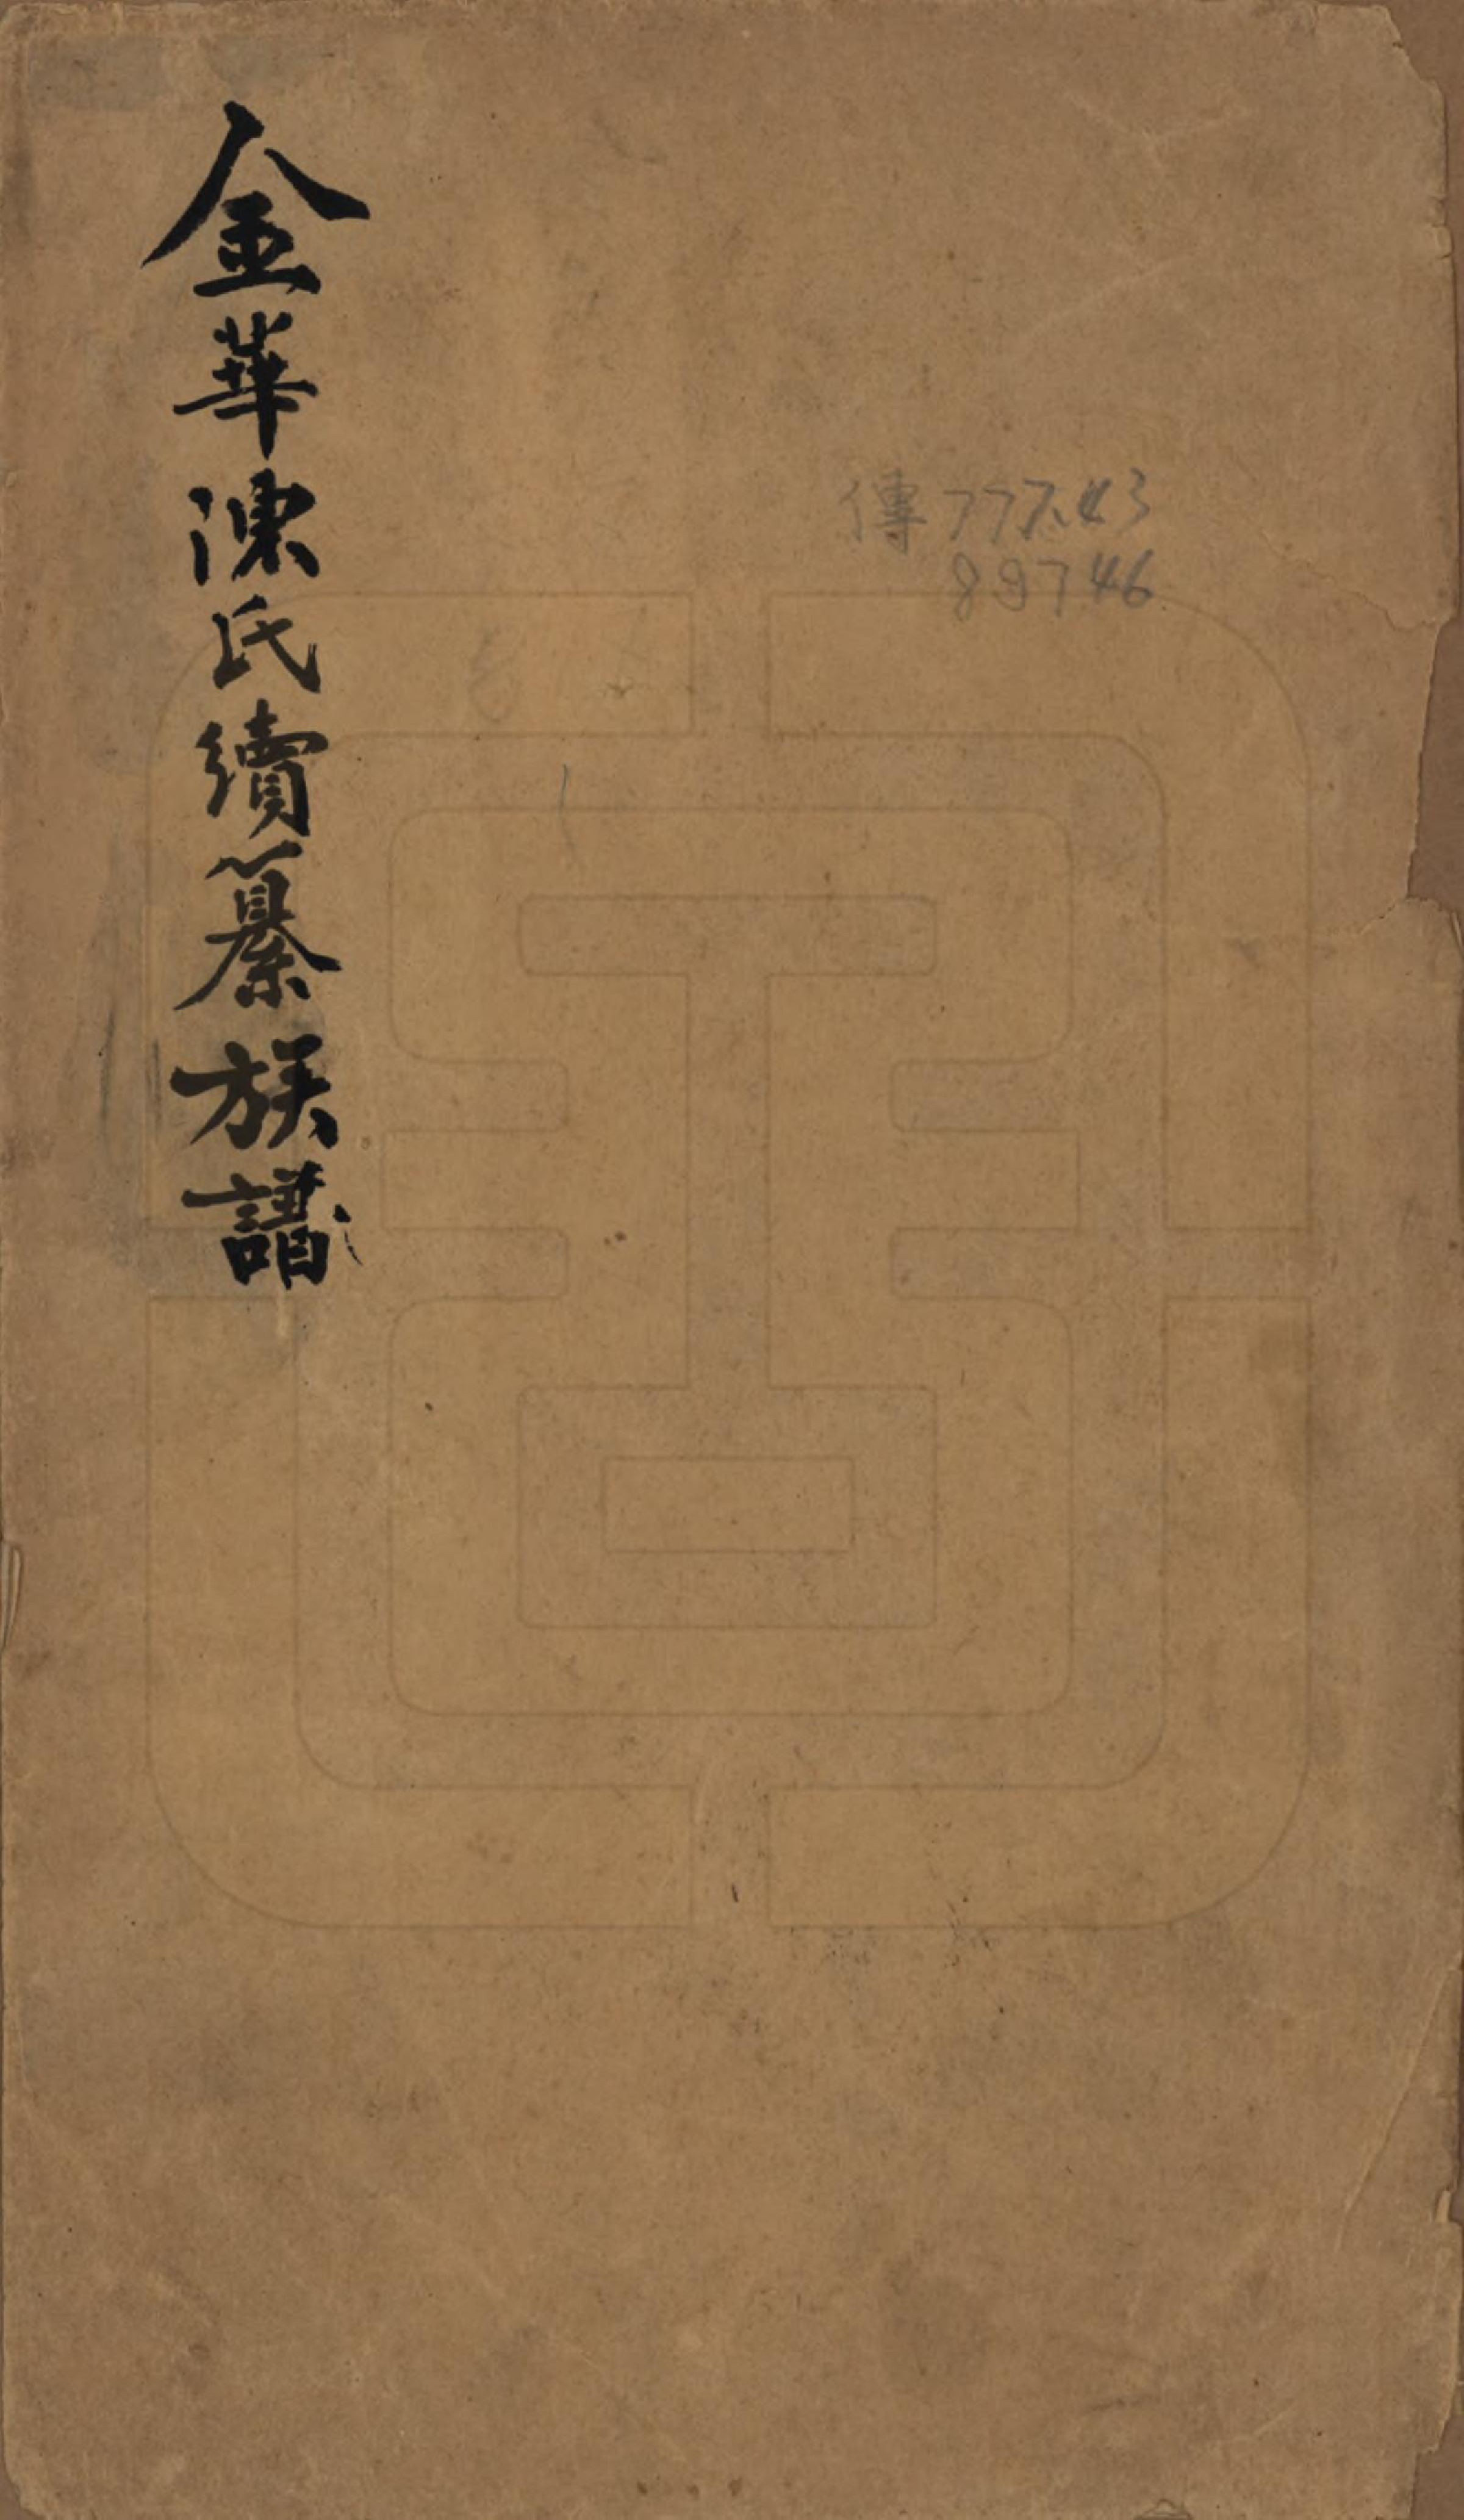 金華陳氏續纂族譜
傳777.43
89746